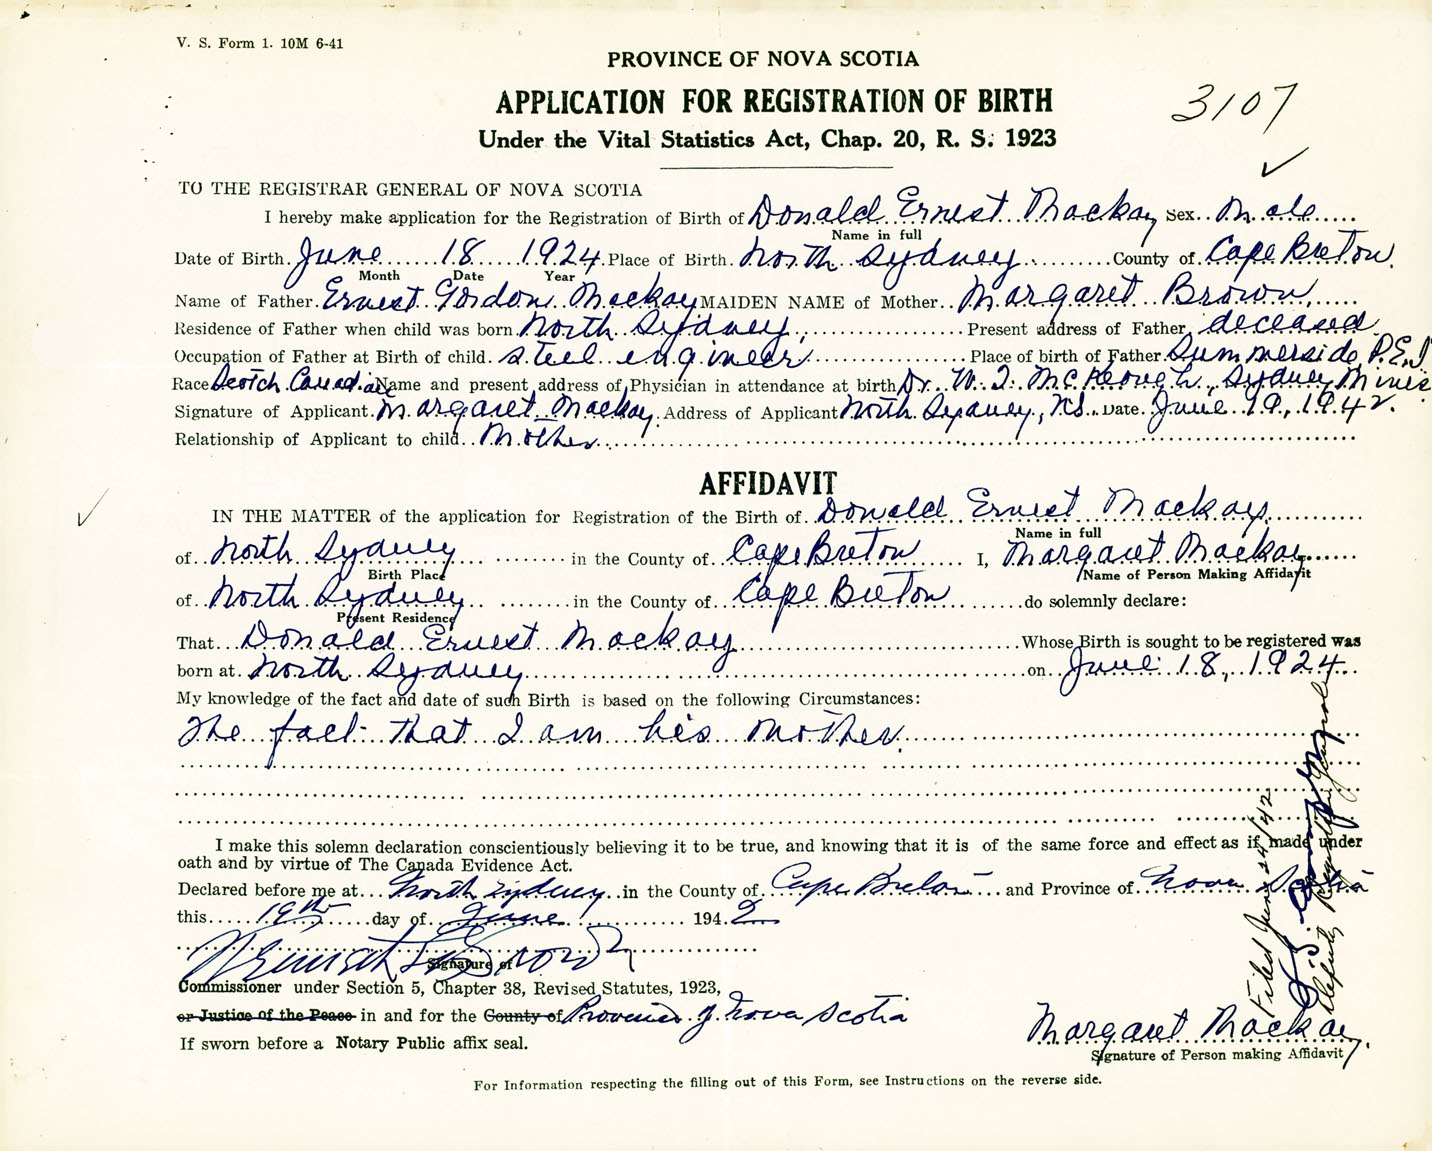 V. S. Form 1. 10M 6-41
PROVINCE OF NOVA SCOTIA
APPLICATION FOR REGISTRATION OF BIRTH
3107
Under the Vital Statistics Act, Chap. 20, R. S. 1923
TO THE REGISTRAR GENERAL OF NOVA SCOTIA
I hereby make application for the Registration of Birth of Donald Ernest Mackay Sex Male
Name in full
Date of Birth June 18 1924 Place of Birth North Sydney County of Cape Breton
Month Date Year
Name of Father Ernest Gordon Mackay MAIDEN NAME of Mother Margaret Brown
Residence of Father when child was born North Sydney Present address of Father deceased
Occupation of Father at Birth of child steel engineer Place of birth of Father Summerside, P.E.I
Race Scotch Canadian Name and present address of Physician in attendance at birth Dr. W. J. McKeough, Sydney Mines
Signature of Applicant Margaret Mackay Address of Applicant North Sydney, N.S. Date June 19, 1942.
Relationship of Applicant to child Mother
AFFIDAVIT
IN THE MATTER of the application for Registration of the Birth of Donald Ernest Mackay
Name in full
of North Sydney in the County of Cape Breton I, Margaret Mackay
Birth Place Name of Person Making Affidavit
of North Sydney in the County of Cape Breton do solemnly declare:
Present Residence
That Donald Ernest Mackay Whose Birth is sought to be registered was
born at North Sydney on June 18, 1924
My knowledge of the fact and date of such Birth is based on the following Circumstances:
The fact that I am his mother.
I make this solemn declaration conscientiously believing it to be true, and knowing that it is of the same force and effect as if made under
oath and by virtue of The Canada Evidence Act.
Declared before me at North Sydney in the County of Cape Breton and Province of Nova Scotia
this 19th day of June 1942
Signature of
Commissioner under Section 5, Chapter 38, Revised Statutes, 1923,
or Justice of the Peace in and for the County of Province of Nova Scotia
If sworn before a Notary Public affix seal.
Margaret Mackay
Signature of Person making Affidavit
For Information respecting the filling out of this Form, see Instructions on the reverse side.
Filed June 24/42
Deputy Registrar General